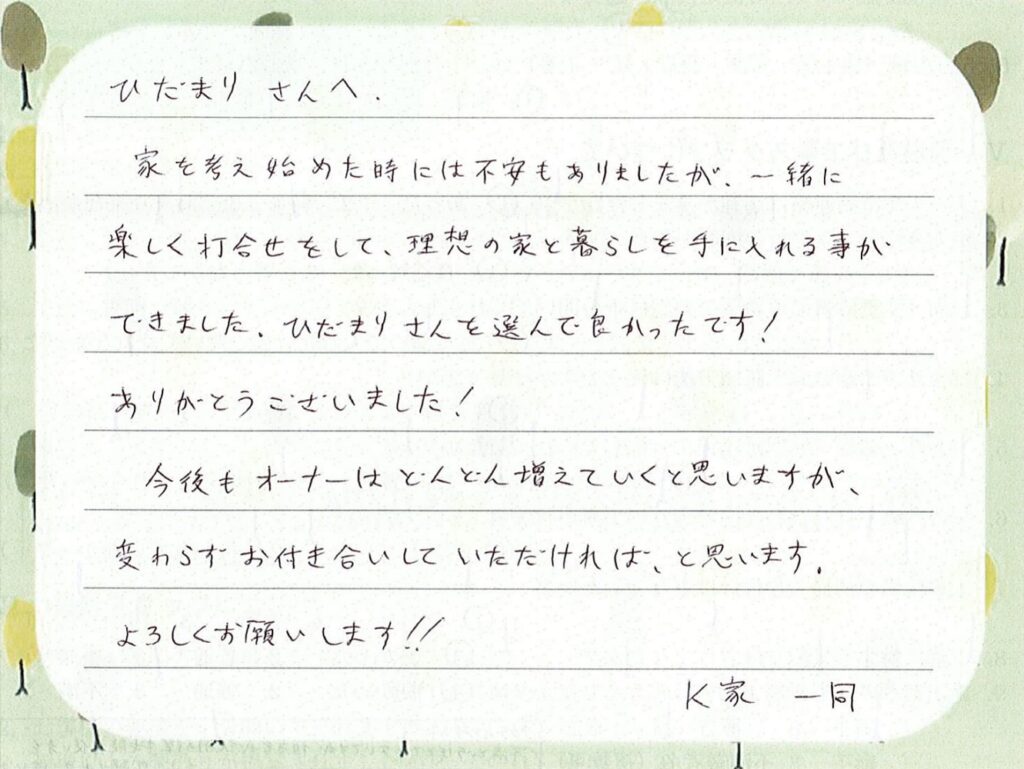 ひだまりさんへ.
家を考え始めた時には不安もありましたが、一緒に
楽しく打合せをして、理想の家と暮らしを手に入れる事が
できました。ひだまりさんを選んで良かったです！
ありがとうございました！
今後もオーナーはどんどん増えていくと思いますが、
変わらずお付き合いしていただければ、と思います。
よろしくお願いします!!
K家 一同